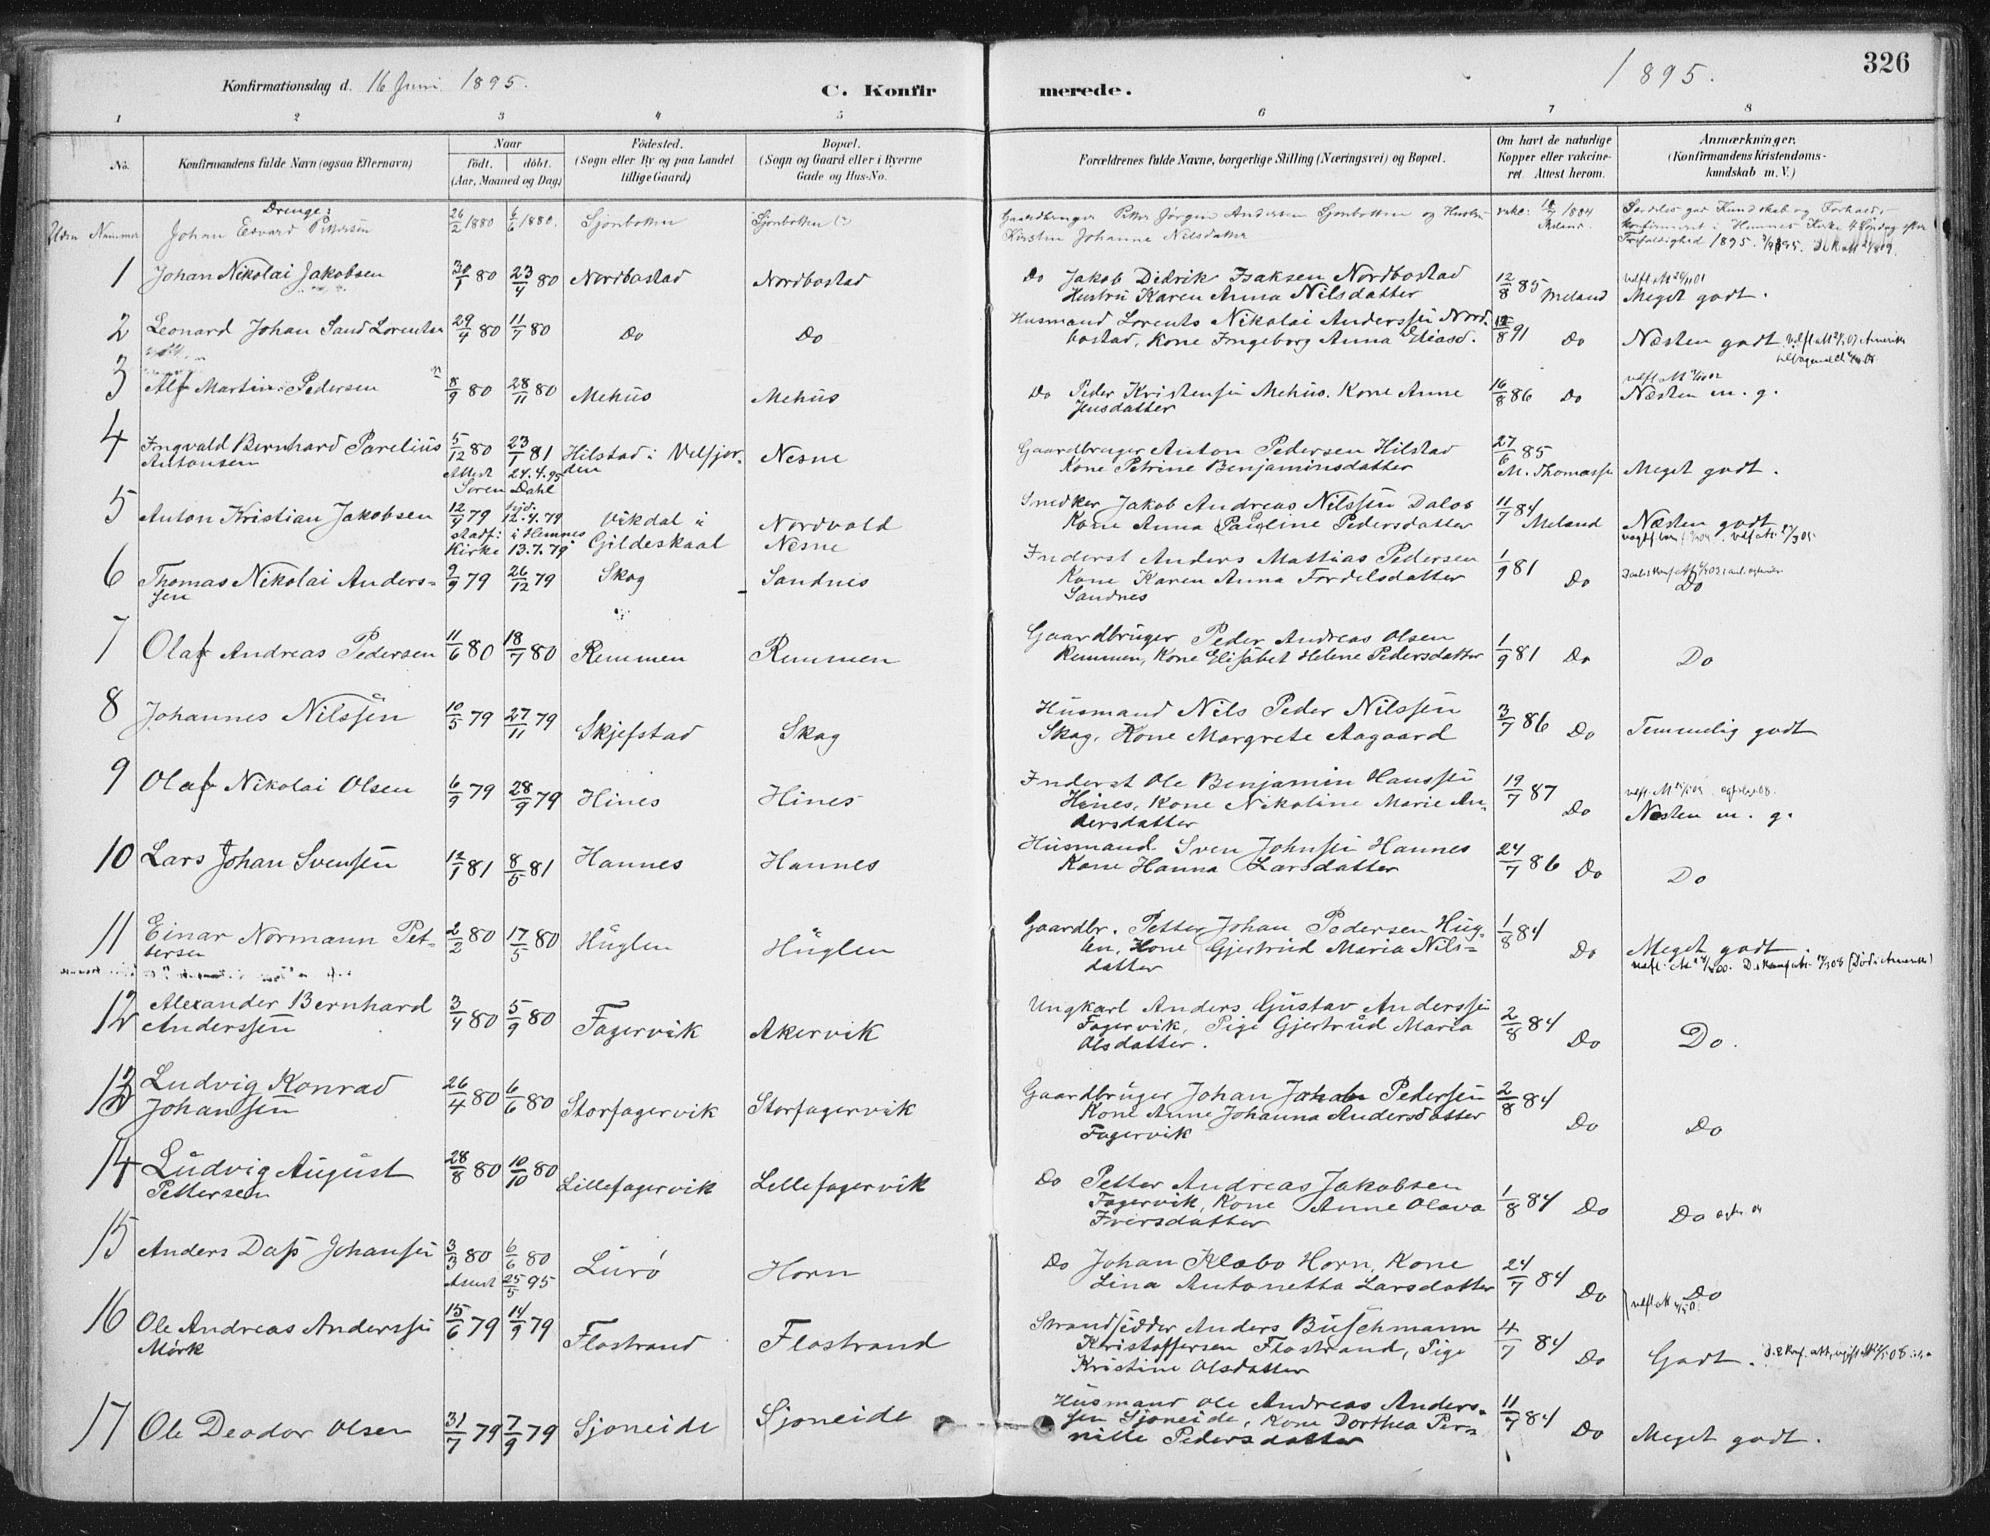 Konfirmationsdag d. 16 Juni 1895.
C. Konfirmerede.
1895.
326
1 2 3 4 5 6 7 8
No.
Konfirmandens fulde Navn (ogsaa Efternavn)
Naar
födt. döbt.
(Aar, Maaned og Dag)
Födested.
(Sogn eller By og paa Landet
tillige Gaard)
Bopæl.
(Sogn og Gaard eller i Byerne
Gade og Hus-No.
Forældrenes fulde Navne, borgerlige Stilling (Næringsvei) og Bopæl.
Om havt de naturlige
Kopper eller vakcine-
ret. Attest herom.
Anmærkninger.
(Konfirmandens Kristendoms-
kundskab m. V.)
Drenge:
Uden Nummer Johan Edvard Pettersen 26/2 1880 6/6 1880. Sjonbotten Sjonbotten Gaardbruger Petter Jørgen Andersen Sjonbotten og Hustru
Kirsten Johanne Nilsdatter
Særdeles god Kundskab og Forhold
Konfirmeret i Hemnes Kirke 4 Søndag efter
Trefoldighed 1895.
1 Johan Nikolai Jakobsen 30/1 80 23/4 80 Nordbostad Nordbostad Do Jakob Didrik Isaksen Nordbostad
Hustru Karen Anna Nilsdatter 12/8 85 Meland Meget godt.
2 Leonard Johan Sand Lorentsen 29/4 80 11/7 80 Do Do Husmand Lorents Nikolai Anderssen Nord-
bostad, Kone Ingeborg Anna Eliasd. 91 Do Næsten godt
3 Alf Martin Pedersen 8/9 80 28/11 80 Mehus Mehus Do Peder Kristensen Mehus. Kone Anne
Jensdatter 16/8 86 Do Næsten m. g.
4 Ingvald Bernhard Parelius
Antonsen 5/12 80 23/1 81 Hilstad i Velfjor-
den Nesne Gaardbruger Anton Pedersen Hilstad
Kone Petrine Benjaminsdatter 27/6 85
M. Thomassen Meget godt.
Attest 24.4.95
Soren Dahl
5 Anton Kristian Jakobsen 12/4 79 hjd. 12.4.79 Vikdal i
Gildeskaal Nordvold
Nesne Snedker Jakob Andreas Nilssen Dalos
Kone Anna Pauline Pedersdatter 11/7 84 Meland Næsten godt
stadf: i Hemnes
Kirke 13.7.79
6 Thomas Nikolai Anders-
sen 9/9 79 26/12 79 Skog Sandnes Inderst Anders Mattias Pedersen
Kone Karen Anna Fordelsdatter
Sandnes 1/9 81 Do Do
7 Olaf Andreas Pedersen 11/6 80 18/7 80 Remmen Remmen Gaardbruger Peder Andreas Olsen
Remmen, Kone Elisabet Helene Pedersdatter 1/9 81 Do Do
8 Johannes Nilssen 10/5 79 27/11 79 Skjefstad Skog Husmand Nils Peder Nilssen
Skog. Kone Margrete Aagaard 3/7 86 Do Temmelig godt
9 Olaf Nikolai Olsen 6/9 79 28/9 79 Hines Hines Inderst Ole Benjamin Hanssen
Hines, Kone Nikoline Marie An-
dersdatter 19/7 87 Do Næsten m. g.
10 Lars Johan Svensen 12/1 81 8/5 81 Hannes Hannes Husmand Sven Johnsen Hannes
Kone Hanna Larsdatter 24/7 86 Do Do
11 Einar Normann Pet-
tersen 2/2 80 17/5 80 Huglen Huglen Gaardbr. Petter Johan Pedersen Hug-
len, Kone Gjertrud Maria Nils-
datter 1/8 84 Do Meget godt.
12 Alexander Bernhard
Anderssen 3/4 80 5/9 80 Fagervik Akervik Ungkarl Anders Gustav Anderssen
Fagervik, Pige Gjertrud Maria
Olsdatter. 2/8 84 Do Do.
13 Ludvig Konrad
Johansen 26/4 80 6/6 80 Storfagervik Storfagervik Gaardbruger Johan Johan Pedersen
Kone Anne Johanna Andersdatter
Fagervik 2/8 84 Do Do
14 Ludvig August
Pettersen 28/8 80 10/10 80 Lillefagervik Lillefagervik Do Petter Andreas Jakobsen
Fagervik, Kone Anne Olava
Iversdatter 1/8 84 Do Do
15 Anders Dass Johansen 3/3 80 6/6 80 Lurø Horn Do Johan Klæbo Horn, Kone
Lina Antonetta Larsdatter 24/7 84 Do Do
Attest 25/5 95
16 Ole Andreas Anderssen
Mørk 15/6 79 14/9 79 Flostrand Flostrand Strandsidder Anders Buschmann
Kristoffersen Flostrand, Pige
Kristine Olsdatter 4/7 84 Do Godt.
17 Ole Deodor Olsen 31/7 79 7/9 79 Sjoneide Sjoneide Husmand Ole Andreas Anders-
sen Sjoneide, Kone Dorthea Per-
nille Pedersdatter 11/7 84 Do Meget godt.